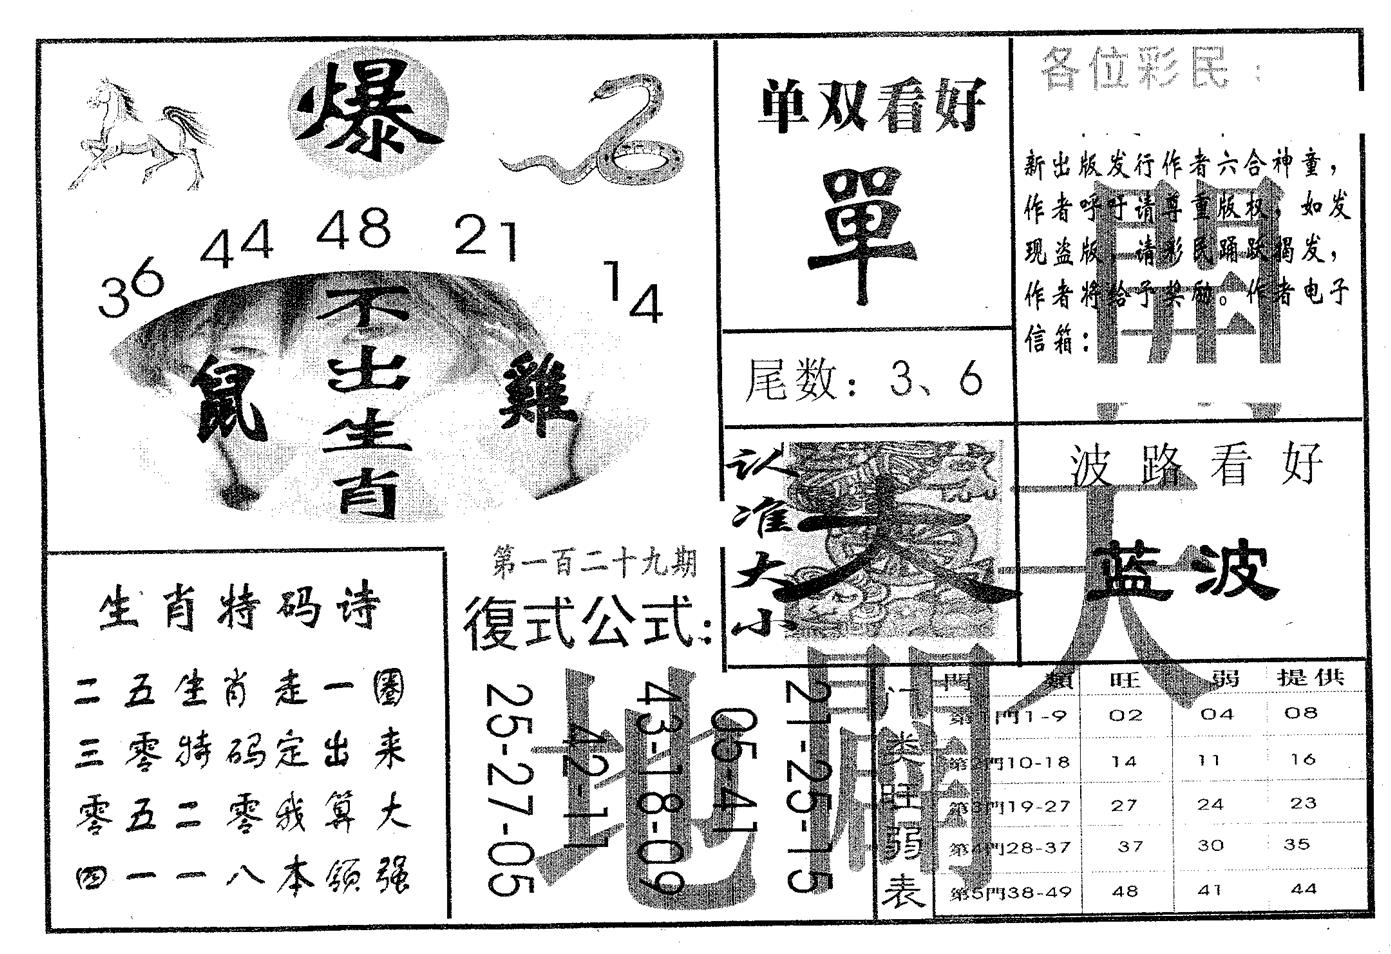 爆
36 44 48 21 14
不出生肖
鼠
雞
单双看好
單
尾数：3、6
各位彩民：
新出版发行作者六合神童，
作者呼吁请尊重版权，如发
现盗版，请彩民踊跃揭发，
作者将给予奖励。作者电子
信箱：
认准大小
大
波路看好
蓝波
天開
地開
生肖特码诗
二五生肖走一圈
三零特码定出来
零五二零我算大
四一一八本领强
第一百二十九期
復式公式:
25-27-05
42-11
43-18-09
05-41
21-25-15
门类旺弱表
門類 旺 弱 提供
第1門1-9 02 04 08
第2門10-18 14 11 16
第3門19-27 27 24 23
第4門28-37 37 30 35
第5門38-49 48 41 44